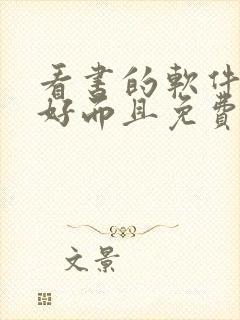 看書的軟件
好而且免費
文景